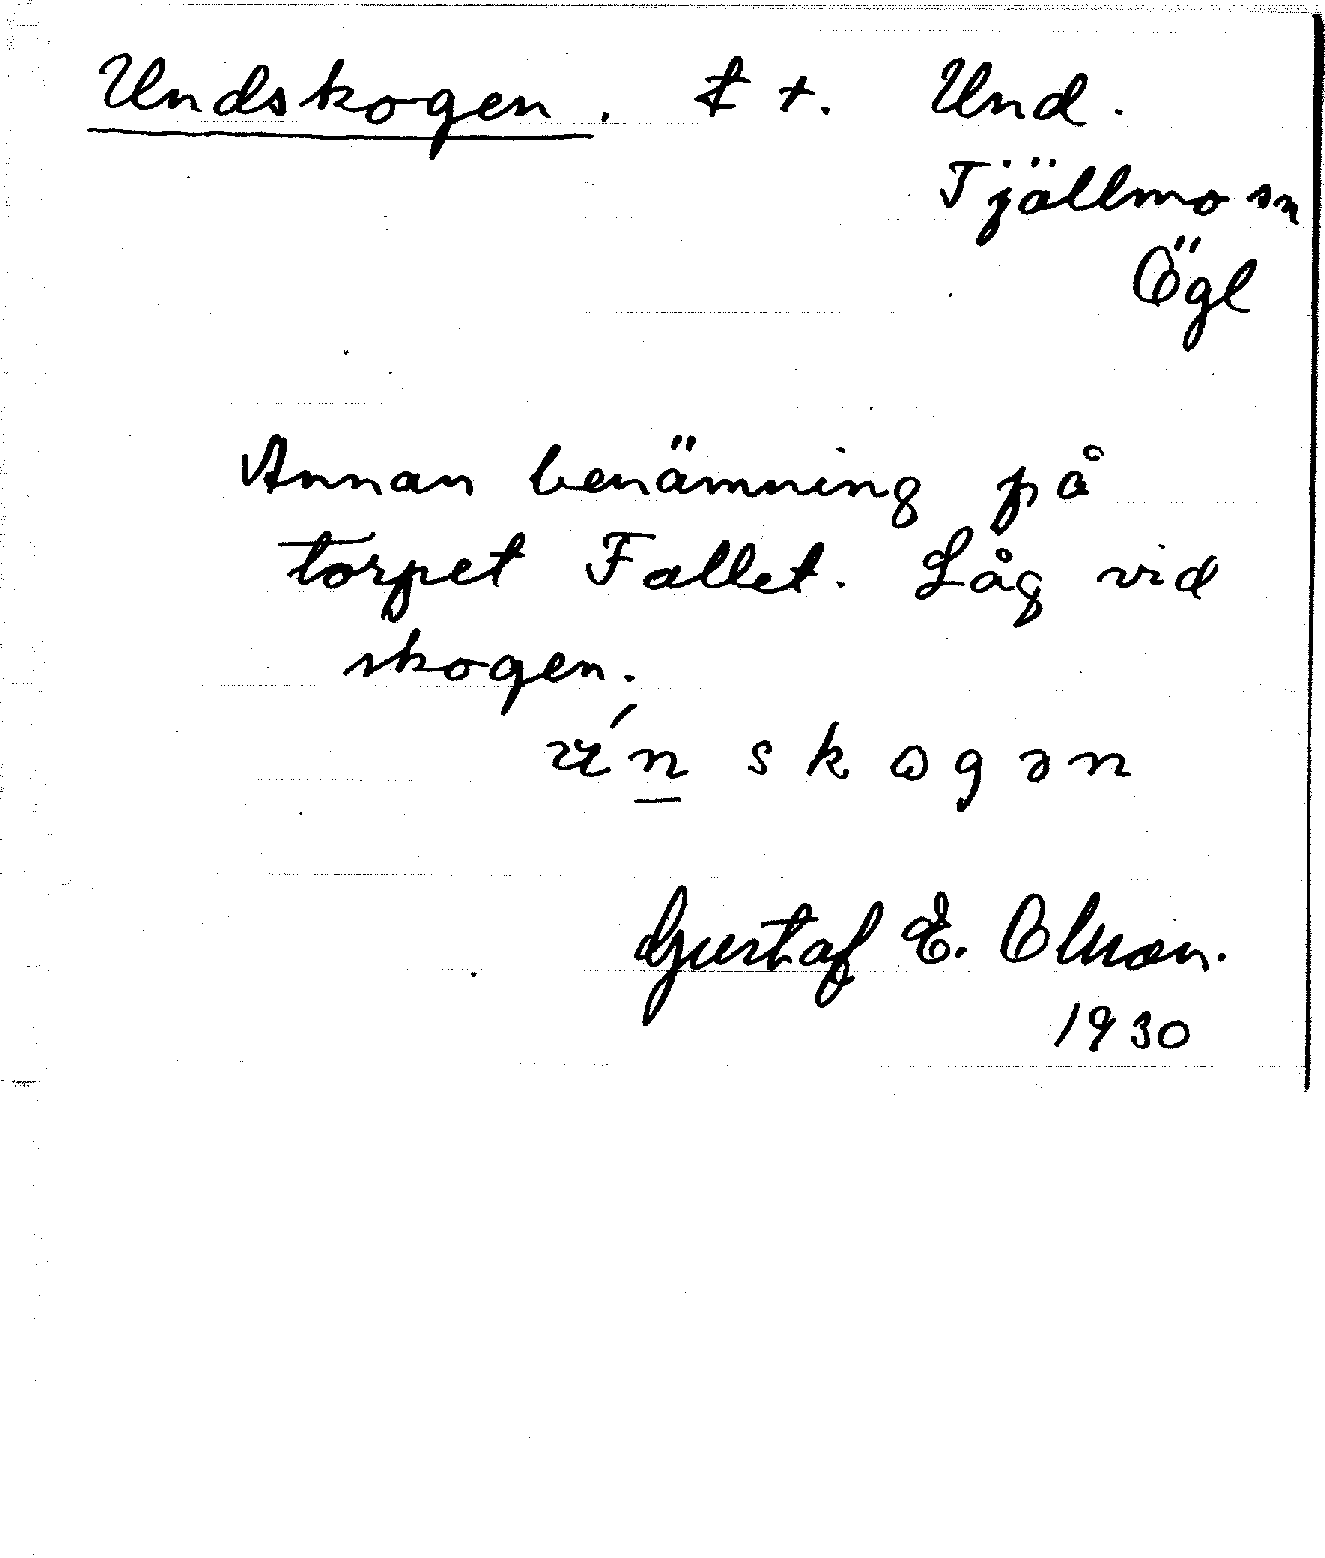 Undskogen. ₤ +. Und.
Tjällmo sn
Ögl
Annan benämning på
torpet Fallet. Låg vid
skogen.
skogən
Gustaf E. Olsson.
1930